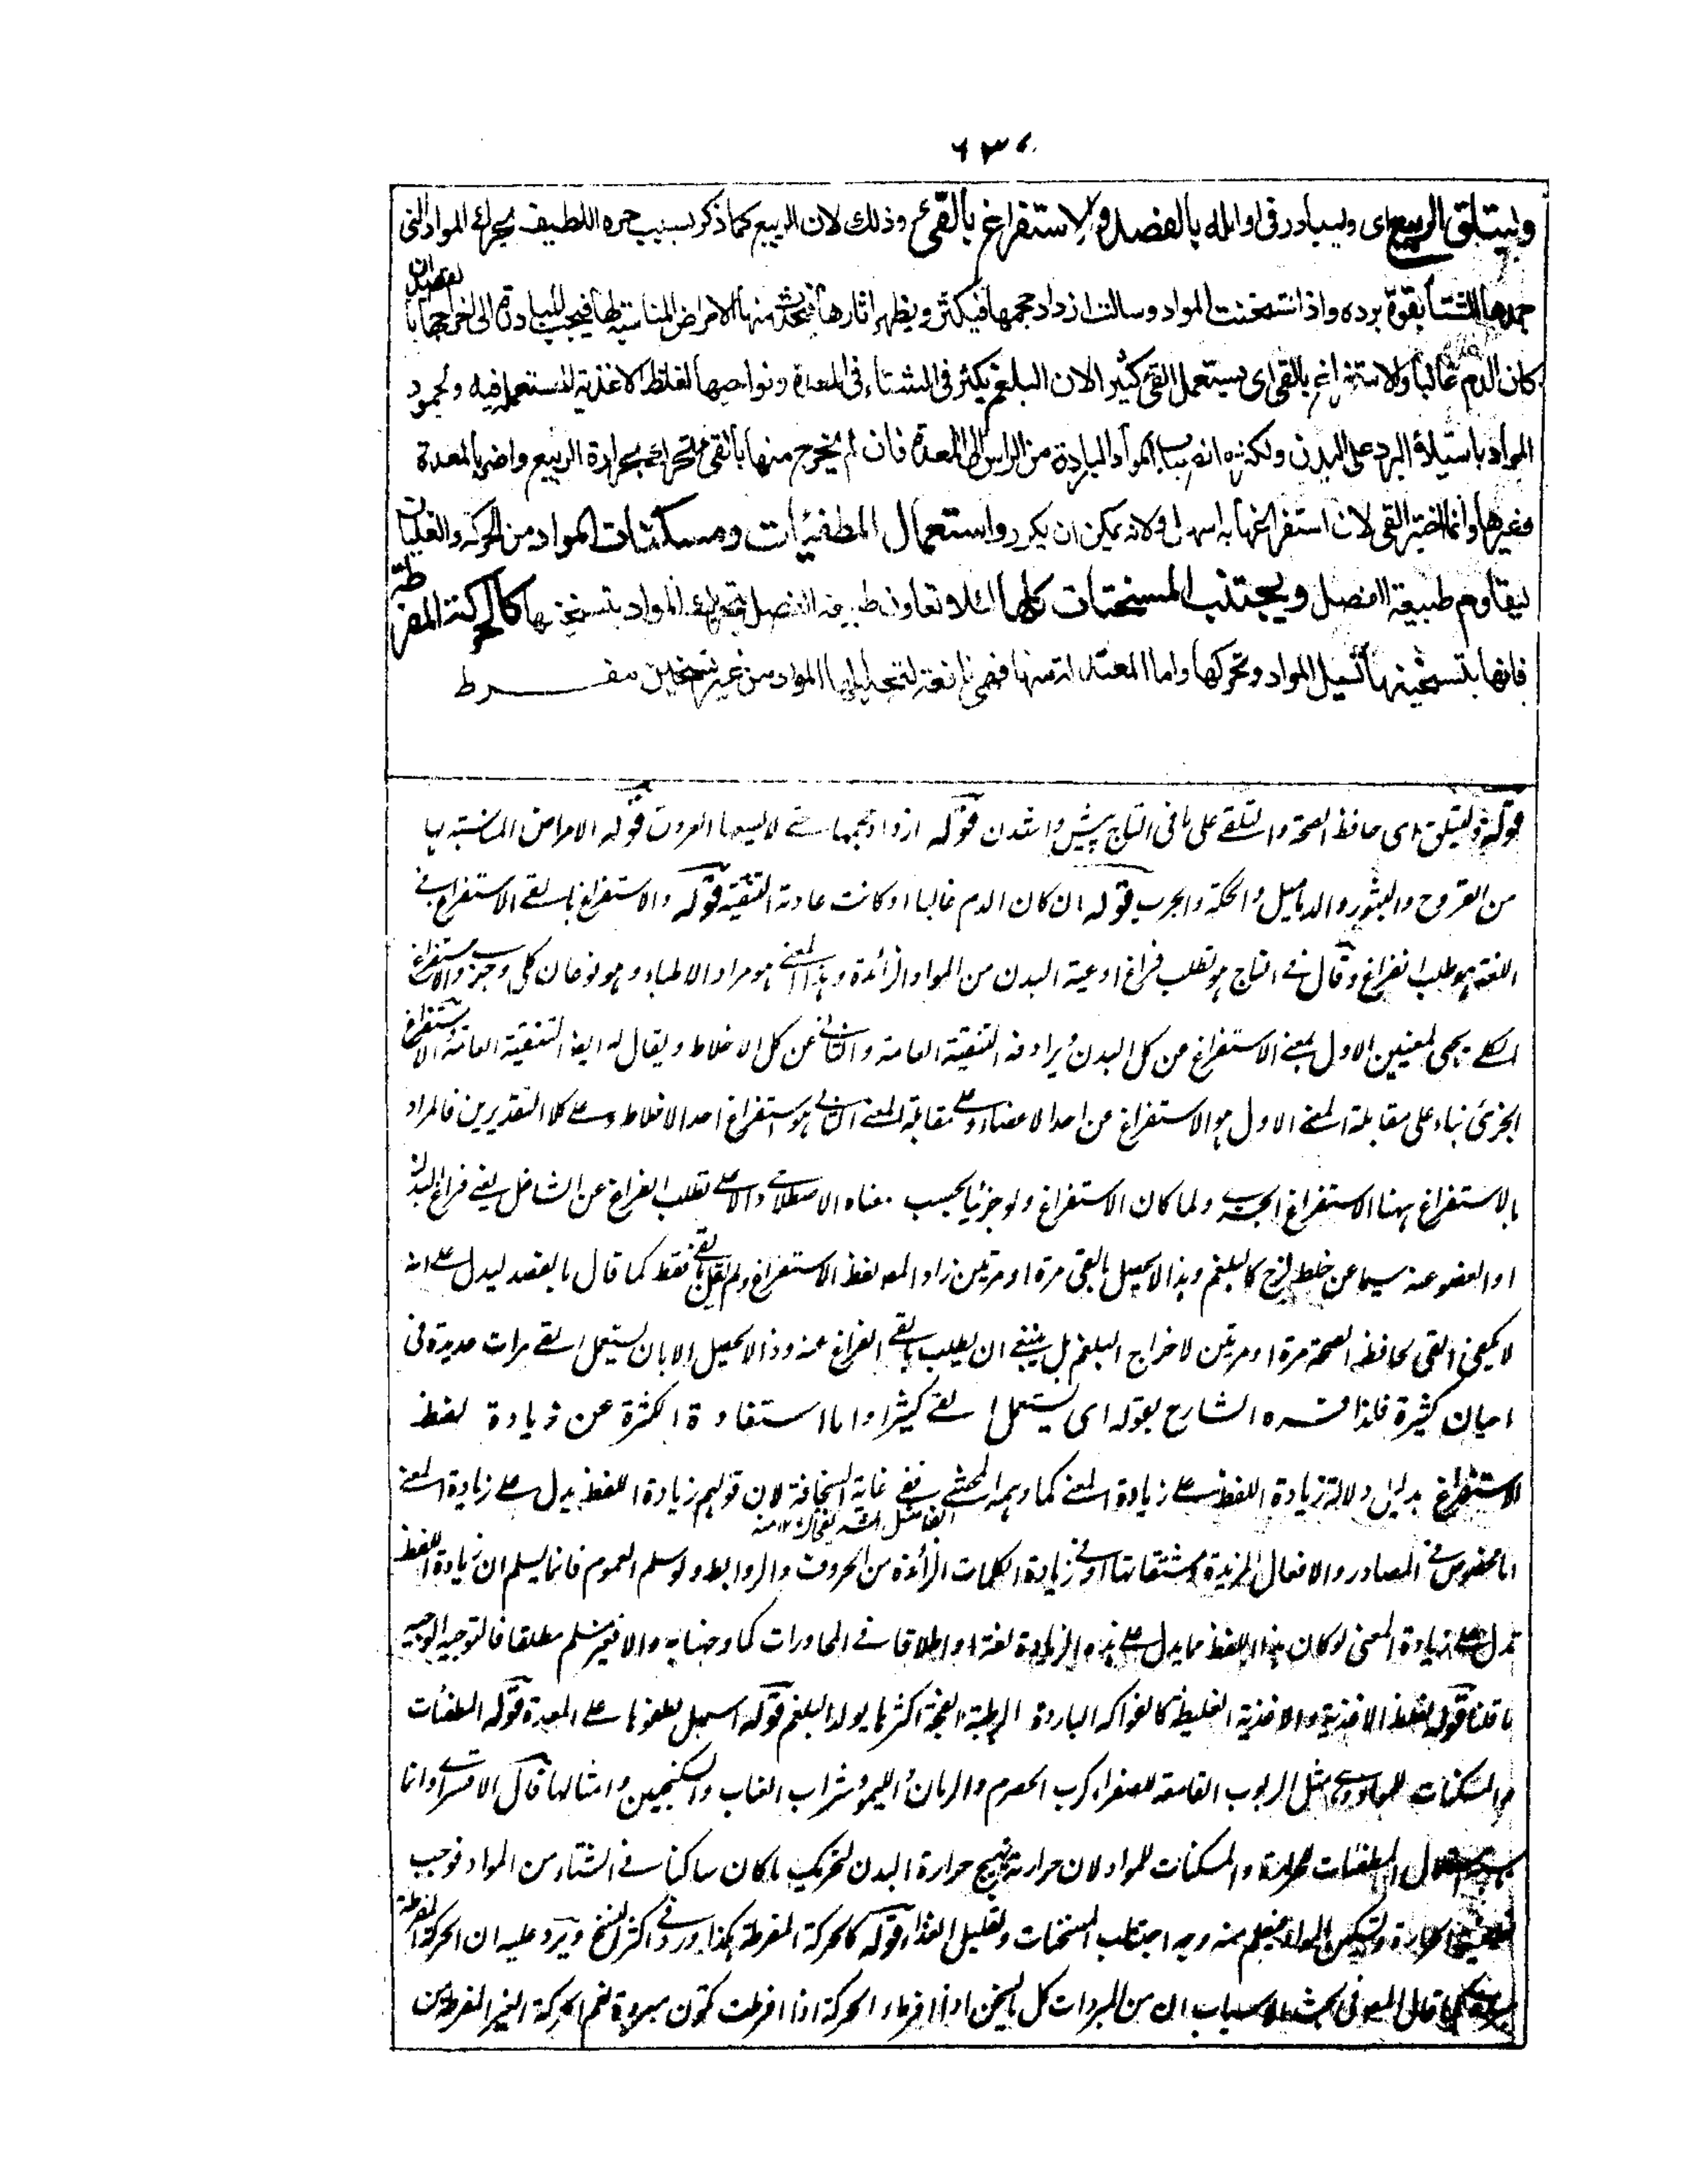 ٦٣٠
وليتلق الربيع اى وليبادر فى اوائله بالفصد والاستفراغ بالقئ وذلك لان الربيع كما ذكر بسبب حره اللطيف يحرك المواد التى
جمدها الشتا بقوة برده واذا تسخنت المواد وسالت ازداد حجمها فيكثر ويظهر اثارها فيحدث منها الامراض المناسبة لها فيجب المبادرة الى اخراجها بالفصد ان
كان الدم غالبا والاستفراغ بالقى اى يستعمل القى كثيرا لان البلغم يكثر فى الشتاء فى المعدة ونواحيها لغلظ الاغذية المستعملة فيه ولجمود
المواد باستيلاء البرد على البدن ولكثرة انصباب المواد الباردة من الراس الى المعدة فان لم يخرج منها بالقى يتحرك بحرارة الربيع واضر بالمعدة
وغيرها وانما اختير القى لان استفراغها به اسهل ولانه يمكن ان يكرر واستعمال المطفئات ومسكنات المواد من الحركة والغليان
ليقاوم طبيعة الفصل ويجتنب المسخنات كلها لئلا تعاون طبيعة الفصل بتحريك المواد بتسخينها كالحركة المفرطة
فانها بتسخينها تسيل المواد وتحركها واما المعتدلة منها فهى نافعة لتحليلها المواد من غير تسخين مفرط
قوله وليتلق اى حافظ الصحة والتلقى على ما فى التاج پيش وا شدن قوله ازداد حجمها حتى لا يسعها العروق قوله الامراض المناسبة لها
من القروح والبثور والدماميل والحكة والجرب قوله ان كان الدم غالبا او كانت عادته التنقية قوله والاستفراغ بالقى الاستفراغ فى
اللغة هو طلب الفراغ وقال فى التاج هو تطلب فراغ اوعية البدن من المواد الزائدة وهذا المعنى هو مراد الاطباء وهو نوعان كلى وجزئى والاستفراغ
الكلى يجى لمعنيين الاول بمعنى الاستفراغ عن كل البدن ويرادفه التنقية العامة والثانى عن كل الاخلاط ويقال له ايضا التنقية العامة والاستفراغ
الجزئى بناء على مقابلة المعنى الاول هو الاستفراغ عن احد الاعضاء وعلى مقابلة المعنى الثانى هو استفراغ احد الاخلاط وعلى كلا التقديرين فالمراد
بالاستفراغ ههنا الاستفراغ الجزئى ولما كان الاستفراغ ولو جزئيا بحسب معناه الاصطلاحى والاصلى تطلب الفراغ عن الشاغل يعنى فراغ البدن
او العضو عنه سيما عن خلط لزج كالبلغم وهذا لا يحصل بالقى مرة او مرتين زاد المصـ لفظ الاستفراغ ولم يقل بالقى فقط كما قال بالفصد ليدل على انه
لا يكفى القى لحافظ الصحة مرة او مرتين لاخراج البلغم بل ينبغى ان يطلب بالقى الفراغ عنه وذا لا يحصل الا بان يستعمل القى مرات عديدة فى
احيان كثيرة فلذا فسره الشارح بقوله اى يستعمل القى كثيرا واما استفادة الكثرة عن زيادة لفظ
الاستفراغ بدليل دلالة زيادة اللفظ على زيادة المعنى كما وهمه المحشى ففى غاية السخافة لان قولهم زيادة اللفظ يدل على زيادة المعنى
الفاضل
انما مخصوص فى المصادر والافعال المزيدة ومشتقاتها او فى زيادة الكلمات الزائدة من الحروف والروابط ولو سلم العموم فانما يسلم ان زيادة اللفظ
تدل على زيادة المعنى لو كان هذا اللفظ مما يدل على هذه الزيادة لغة او اطلاقا فى المحاورات كما وجهنا به والا فغير مسلم مطلقا فالتوجيه الوجيه
ما قلنا قوله لغلظ الاغذية والاغذية الغليظة كالفواكه الباردة الرطبة الفجة اكثر ما يولد البلغم قوله اسهل لطفوها على المعدة قوله المطفئات
والمسكنات للمواد وهى مثل الربوب القامعة للصفراء كرب الحصرم والرمان والليمو وشراب العناب والسكنجبين وامثالها قال الاقسرائى وانما
يجب استعمال المطفئات للحرارة والمسكنات للمواد لان حرارته تهيج حرارة البدن لتحريك ما كان ساكنا فى الشتاء من المواد فوجب
تطفية الحرارة وتسكين المواد فيعلم منه وجه اجتناب المسخنات وتقليل الغذاء قوله كالحركة المفرطة هكذا ورد فى اكثر النسخ ويرد عليه ان الحركة المفرطة
قال المصـ فى بحث الاسباب ان من المبردات كل ما يسخن اذا افرط والحركة اذا افرطت تكون مبردة نعم الحركة الغير المفرطة من